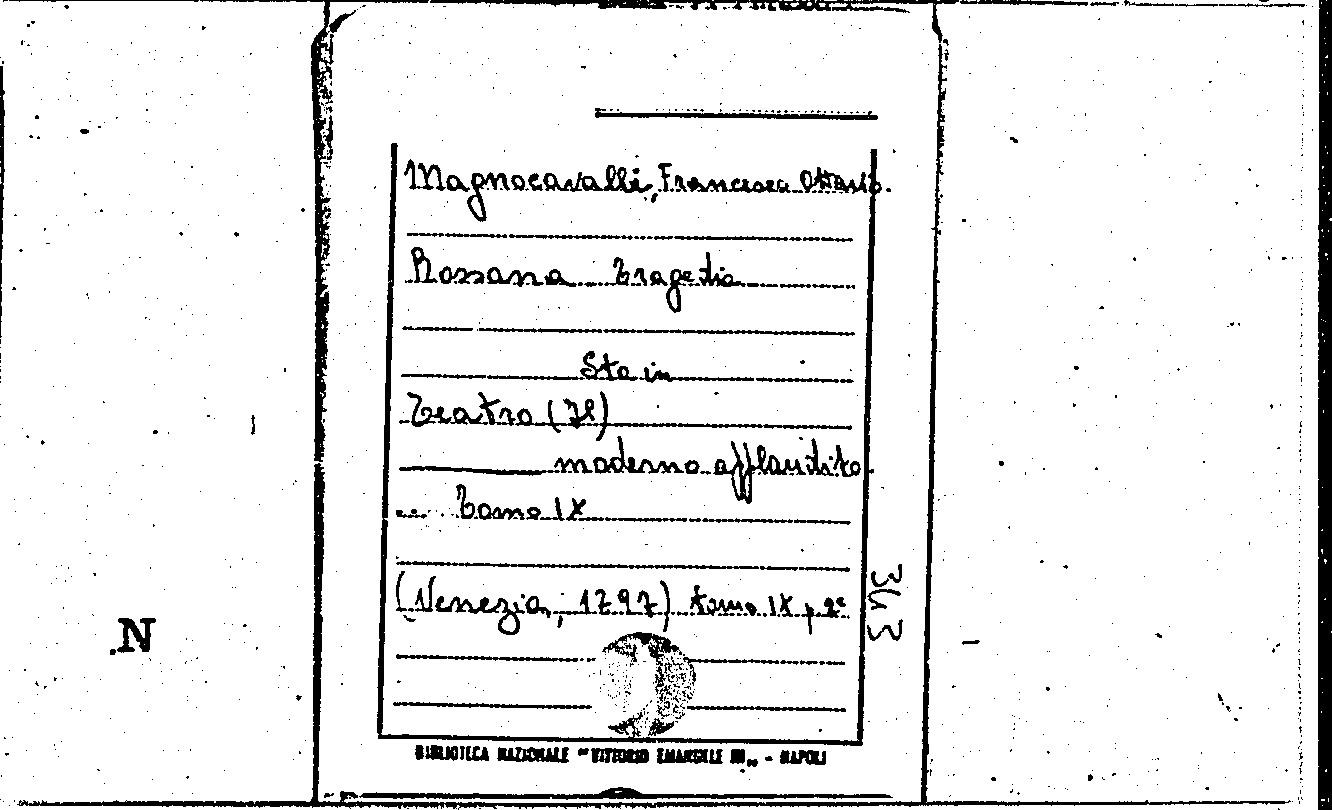 Magnocavalli, Francesco Ottavio.
Rossana Tragedia
Sta in
Teatro (Il)
moderno applaudito.
... Tomo IX
(Venezia, 1797) tomo IX p. 2ª
343
N
BIBLIOTECA NAZIONALE "VITTORIO EMANUELE III„ - NAPOLI